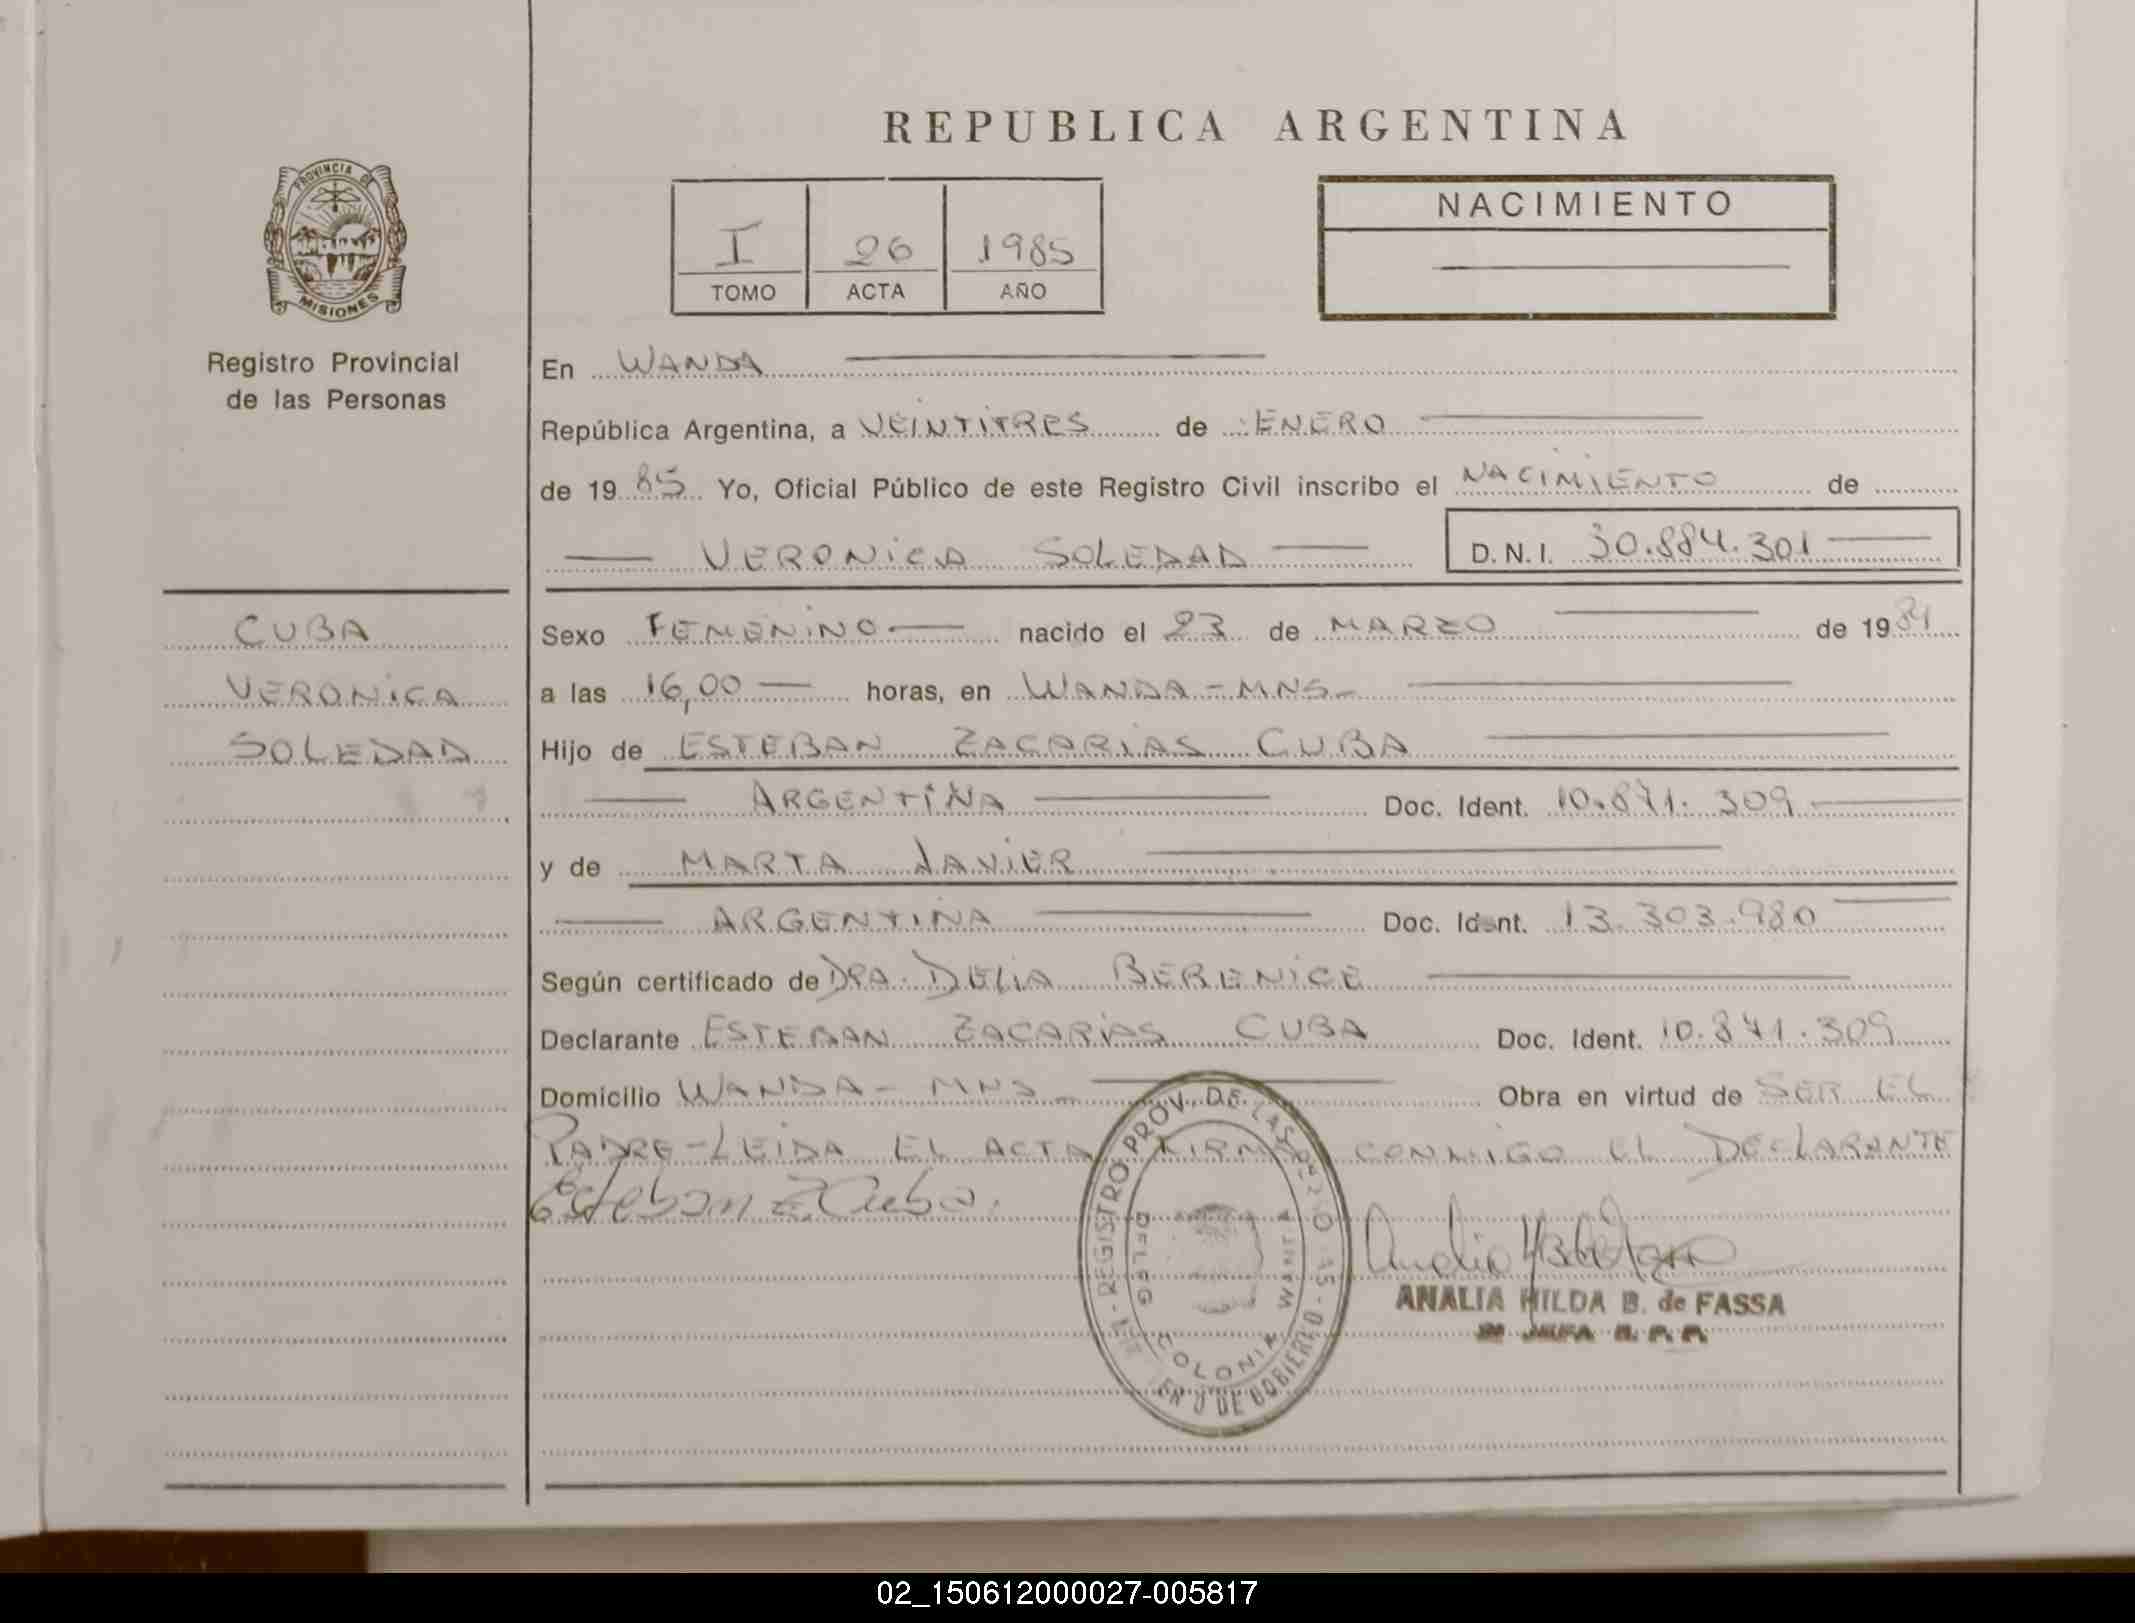 REPUBLICA ARGENTINA
PROVINCIA DE
MISIONES
Registro Provincial
de las Personas
I 26 1985
TOMO ACTA AÑO
NACIMIENTO
En WANDA
República Argentina, a VEINTITRES de ENERO
de 1985 Yo, Oficial Público de este Registro Civil inscribo el NACIMIENTO de
VERONICA SOLEDAD D.N.I. 30.884.301
CUBA
VERONICA
SOLEDAD
Sexo FEMENINO nacido el 23 de MARZO de 1984
a las 16,00 horas, en WANDA - MNS-
Hijo de ESTEBAN ZACARIAS CUBA
ARGENTINA Doc. Ident. 10.871.309
y de MARTA JAVIER
ARGENTINA Doc. Ident. 13.303.980
Según certificado de DRA. DELIA BERENICE
Declarante ESTEBAN ZACARIAS CUBA Doc. Ident. 10.871.309
Domicilio WANDA - MNS - Obra en virtud de SER EL
PADRE - LEIDA EL ACTA FIRMA CONMIGO EL DECLARANTE
Esteban Z Cuba.
REGISTRO PROV. DE LAS
DELEG COLONIA WANDA
DE GOBIERNO
ANALIA HILDA B. de FASSA
JEFA R. P. P.
02_150612000027-005817